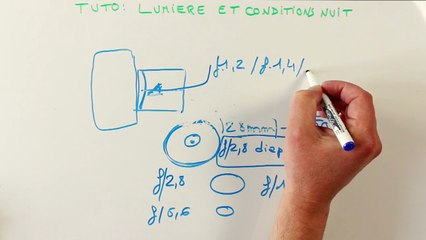 TUTO: LUMIERE ET CONDITIONS NUIT
f.1,2 / f.1,4 /
28mm) =
f/2,8 diap
f/2,8 f/1
f/5,6